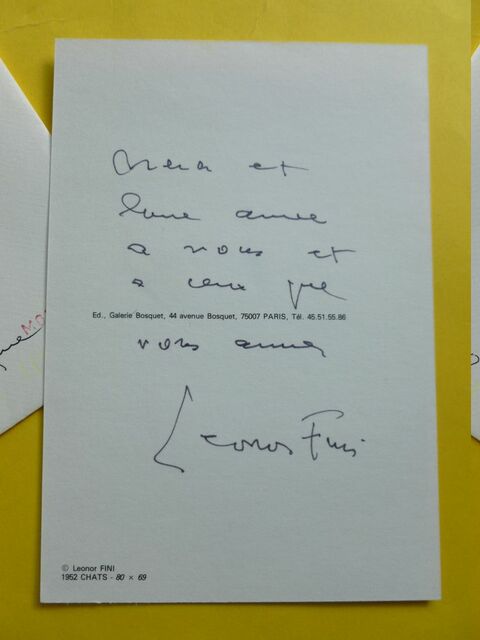 Merci et
bonne année
a vous et
a ceux que
Ed., Galerie Bosquet, 44 avenue Bosquet, 75007 PARIS, Tél. 45.51.55.86
vous aimez
Leonor Fini
© Leonor FINI
1952 CHATS - 80 × 69